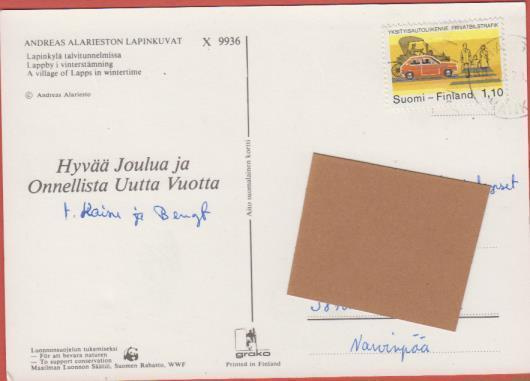 ANDREAS ALARIESTON LAPINKUVAT X 9936
Lapinkylä talvitunnelmissa
Lappby i vinterstämning
A village of Lapps in wintertime
© Andreas Alariesto
Hyvää Joulua ja
Onnellista Uutta Vuotta
t. Kaisu ja Bengt
Luonnonsuojelun tukemiseksi
– För att bevara naturen
– To support conservation
Maailman Luonnon Säätiö, Suomen Rahasto, WWF
Aito suomalainen kortti
grako
Printed in Finland
YKSITYISAUTOLIIKENNE PRIVATBILSTRAFIK
Suomi – Finland 1,10